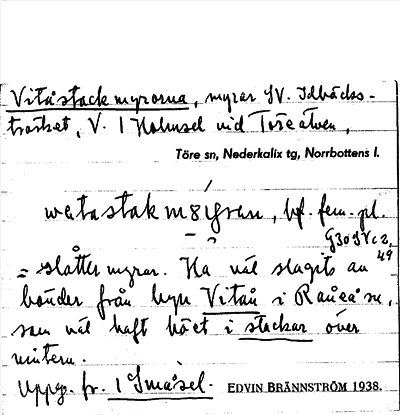 Vitåstackmyrorna, myrar SV. Idbäcks-
träsket, V. I Holmsel vid Töre älven,
Töre sn, Nederkalix tg, Norrbottens l.
bf. fem. pl.
G30SVc2,
49
= slåttermyrar. Ha väl slagits av
bönder från byn Vitån i Råneå sn,
som väl haft höet i stackar över
vintern.
Uppg. fr. I Småsel. EDVIN BRÄNNSTRÖM 1938.